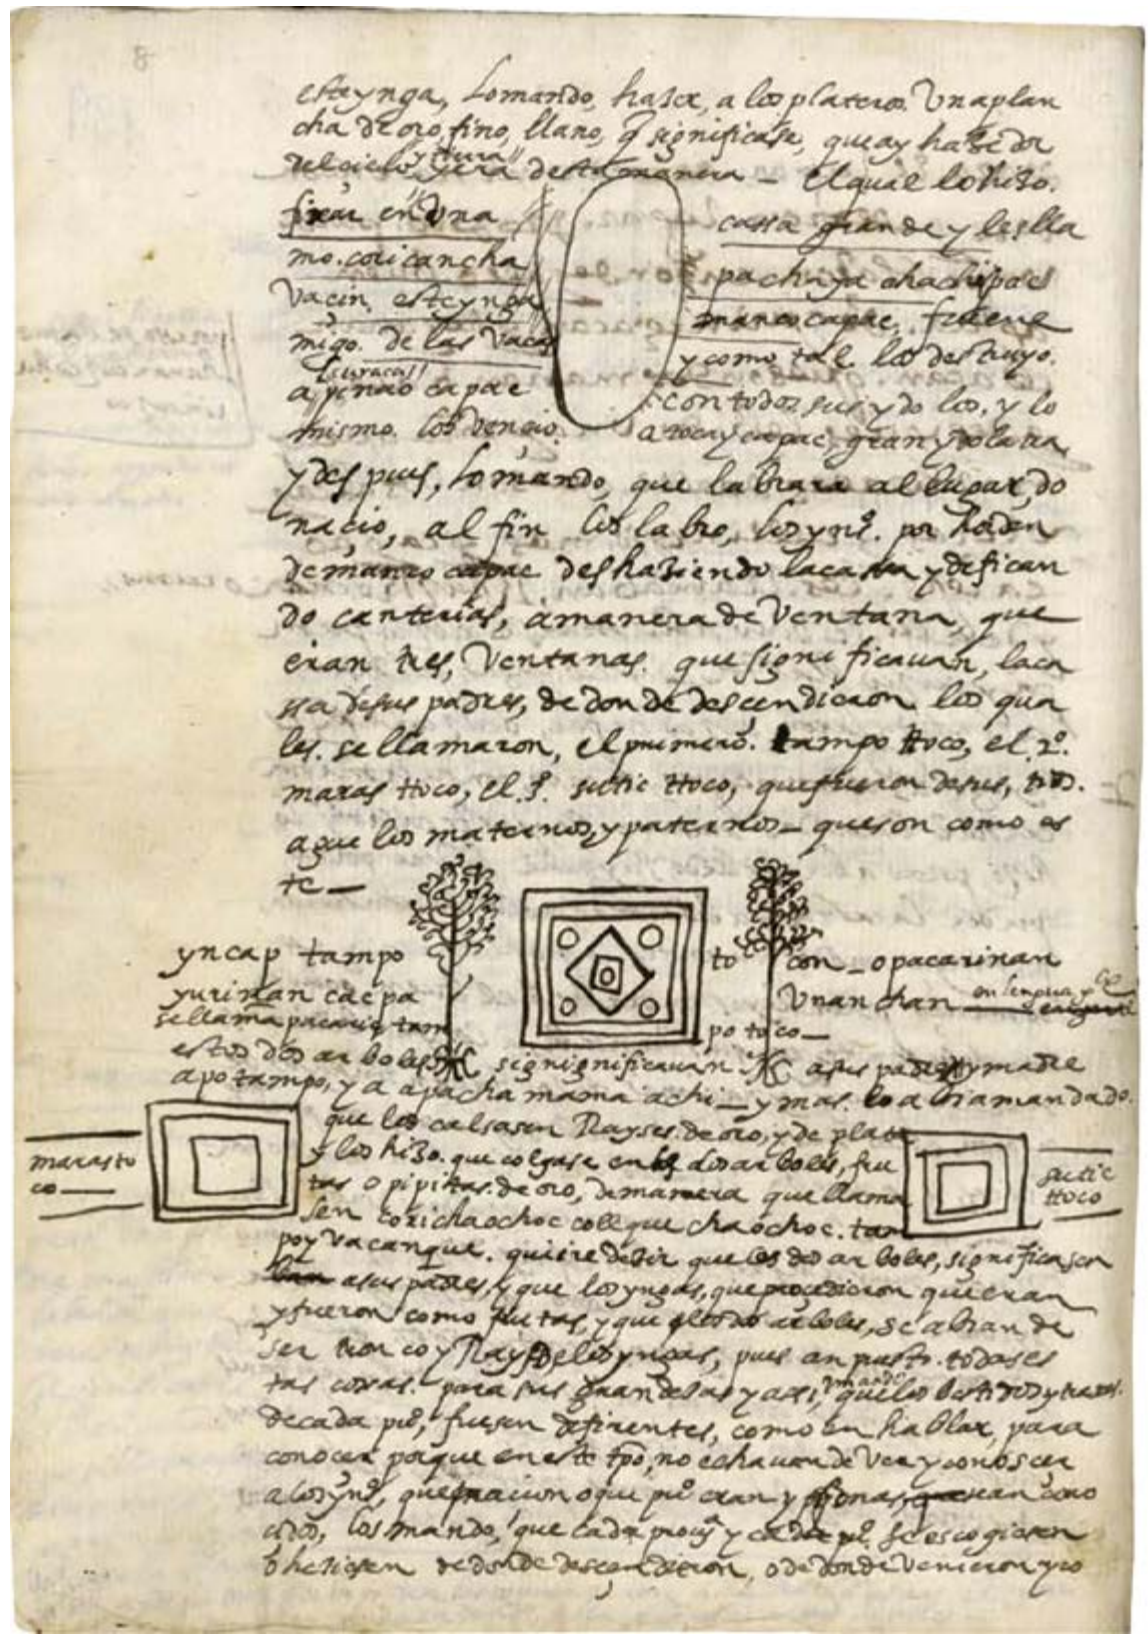 8
este ynga, lo mando, haser, a los plateros. Una plan
cha de oro fino, llano, q̃ significase, que ay hasedor
del cielo y tierra y era desta manera _ el qual lo hizo.
fixar en una casa grande y les lla
mo. coricancha pachayachachipac
vacin este ynga mancocapac, fue ene
migo. de las vacas y como tal los destruyo.
curacas
a pinao capac con todos sus ydolos, y lo
mismo los vencio. a tocay capac, gran ydolatra
y despues, lo mando, que labrara al lugar, do
nacio, al fin los labro, los yn.os por horden
de manco capac deshaziendo la casa y defican
do canterias, a manera de ventana, que
eran tres, ventanas. que significavan, la ca
ssa de sus padres, de donde descendieron los qua
les. se llamaron, el primero. tampo ttoco, el 2.º
maras ttoco, el .3.º sutic ttoco, que fueron de sus, tios.
aguelos maternos, y paternos _ que son como es
te _
yncap tampo to con _ o pacarinan
yurinan cacpa unanchan en lengua
se llama pacarin tam po toco _
estos dos arboles signignificavan a sus padre y madre
apo tampo, y a apachamama achi _ y mas. lo abia mandado.
que los calsasen Rayses. de oro, y de plata
marasto
co _
sutic
ttoco
y los hizo. que colgase en los dos arboles, fru
tas o pipitas. de oro, de manera que llama
sen corichaochoc collquechaochoc. tam
poy vacanque. quiere desir que los dos arboles, significasen
a sus padres, y que los yngas, que procedieron que eran
y fueron como frutas, y que los dos arboles, se abian de
ser tronco y Rays de los yngas, pues an puesto. todas es
tas cosas. para sus grandesas y assi, mando que los bestidos y trajes.
de cada pu.o, fuesen diferentes, como en hablar, para
conocer porque en este tpo, no echavan de ver y conoscer
a los yn.os, que nacion o que pu.o eran
cidos, los mando, que cada provi.a y cada pu.o se escogiesen
o hiziesen de donde descendieron, o de donde venieron y co